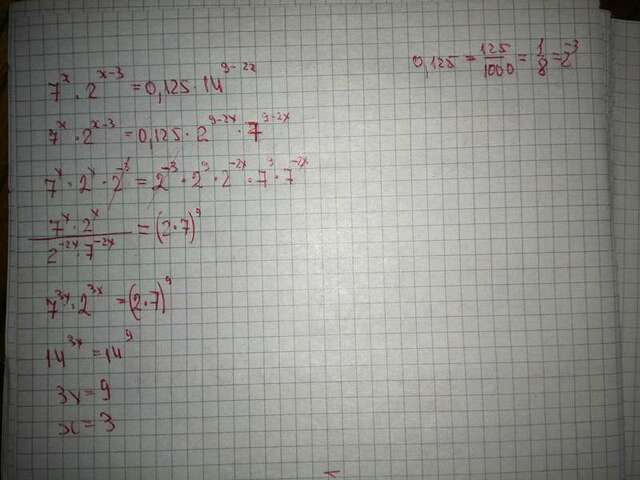 7^x · 2^{x-3} = 0,125 · 14^{9-2x}
7^x · 2^{x-3} = 0,125 · 2^{9-2x} · 7^{9-2x}
7^x · 2^x · 2^{-3} = 2^{-3} · 2^9 · 2^{-2x} · 7^9 · 7^{-2x}
\frac{7^x · 2^x}{2^{-2x} · 7^{-2x}} = (2·7)^9
7^{3x} · 2^{3x} = (2·7)^9
14^{3x} = 14^9
3x = 9
x = 3
0,125 = \frac{125}{1000} = \frac{1}{8} = 2^{-3}